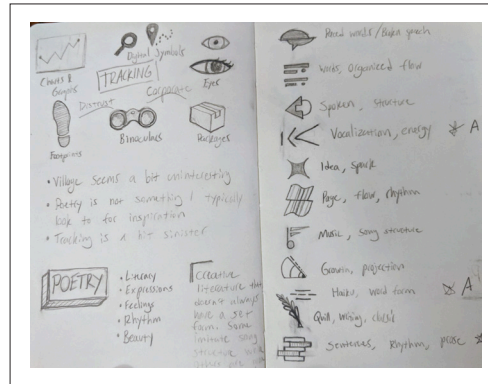 Charts &
Graphs
Digital Symbols
TRACKING
Distrust
Corporate
Eyes
Footprints
Binoculars
Packages
• Village seems a bit uninteresting
• Poetry is not something I typically
look to for inspiration
• Tracking is a bit sinister
POETRY
• Literacy
• Expressions
• Feelings
• Rhythm
• Beauty
Creative
literature that
doesn't always
have a set
form. Some
imitate song
structure
words/
Words, organized flow
Spoken, structure
Vocalization, energy A
Idea, spark
Page, flow, rhythm
Music, song structure
Growth, projection
Haiku, word form A
Quill, writing,
Sentences, rhythm, prose